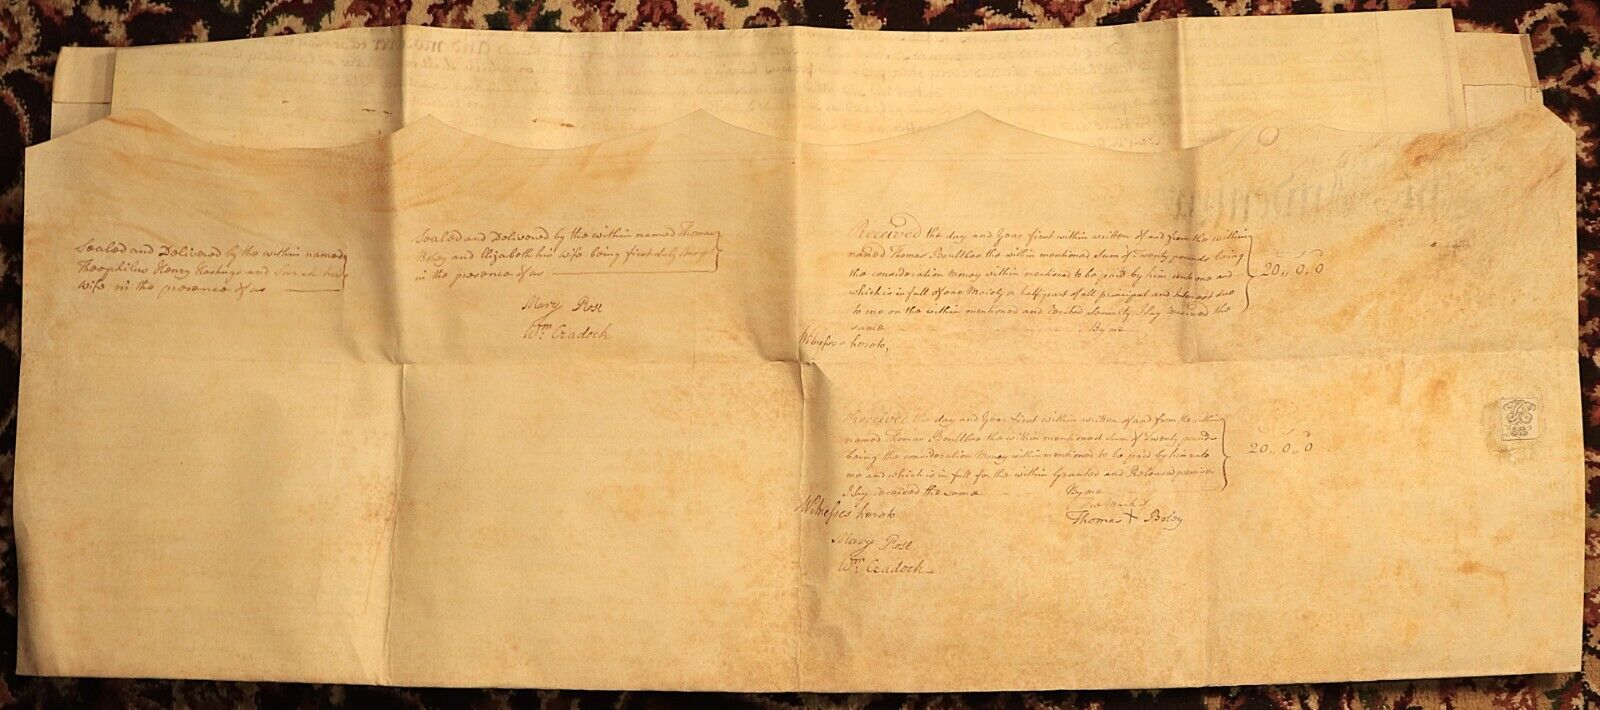 Sealed and Delivered by the within named
Theophilus Henry Hastings and Sarah his
wife in the presence of us
Sealed and Delivered by the within named Thomas
Boley and Elizabeth his wife being first duly Stampt
in the presence of us
Mary Rose
Wm. Cradock
Received the day and Year first within written of and from the within
named Thomas Boultbee the within mentioned Sum of Twenty pounds being
the consideration Money within mentioned to be paid by him unto me and
which is in full of one Moiety or half part of all principal and Interest due
to me on the within mentioned and recited Security I say received the
same By me
20,, 0,, 0
Witnesses hereto,
Received the day and Year first within written of and from the within
named Thomas Boultbee the within mentioned Sum of Twenty pounds
being the consideration Money within mentioned to be paid by him unto
me and which is in full for the within Granted and Released premises
I say received the same By me
20,, 0,, 0
Mark of
Thomas X Boley
Witnesses hereto
Mary Rose
Wm. Cradock